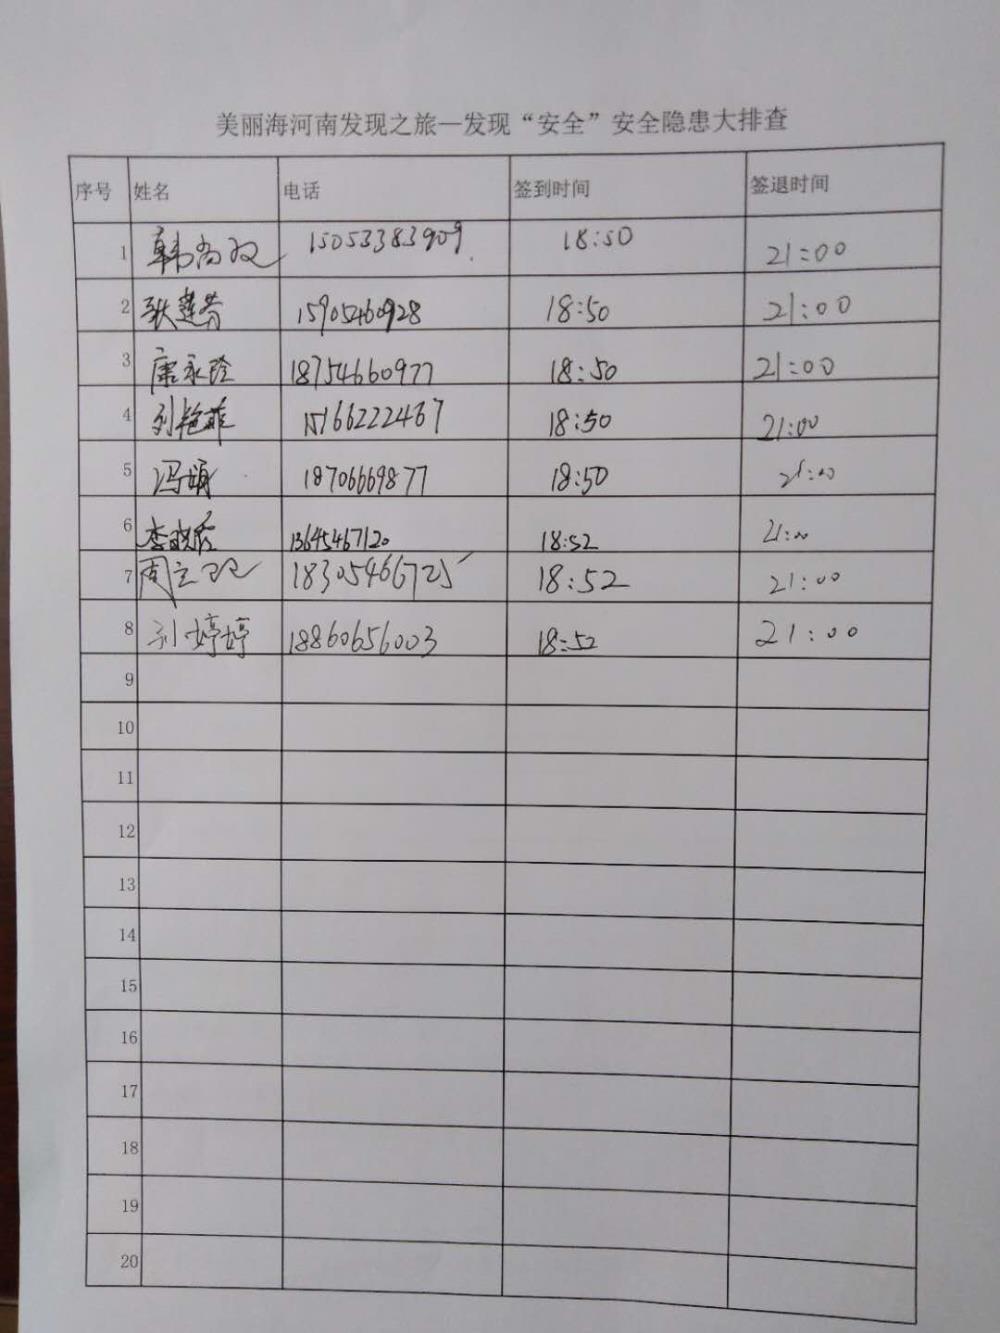 美丽海河南发现之旅—发现“安全”安全隐患大排查
序号 姓名 电话 签到时间 签退时间
1 韩尚双 15053383909 18:50 21:00
2 耿建芳 15905460928 18:50 21:00
3 唐永玲 18754660977 18:50 21:00
4 刘艳菲 15166222467 18:50 21:00
5 冯娟 18706669877 18:50 21:00
6 李晓霞 13645467120 18:52 21:00
7 周立 18305466725 18:52 21:00
8 孙婷婷 18860656003 18:52 21:00
9
10
11
12
13
14
15
16
17
18
19
20